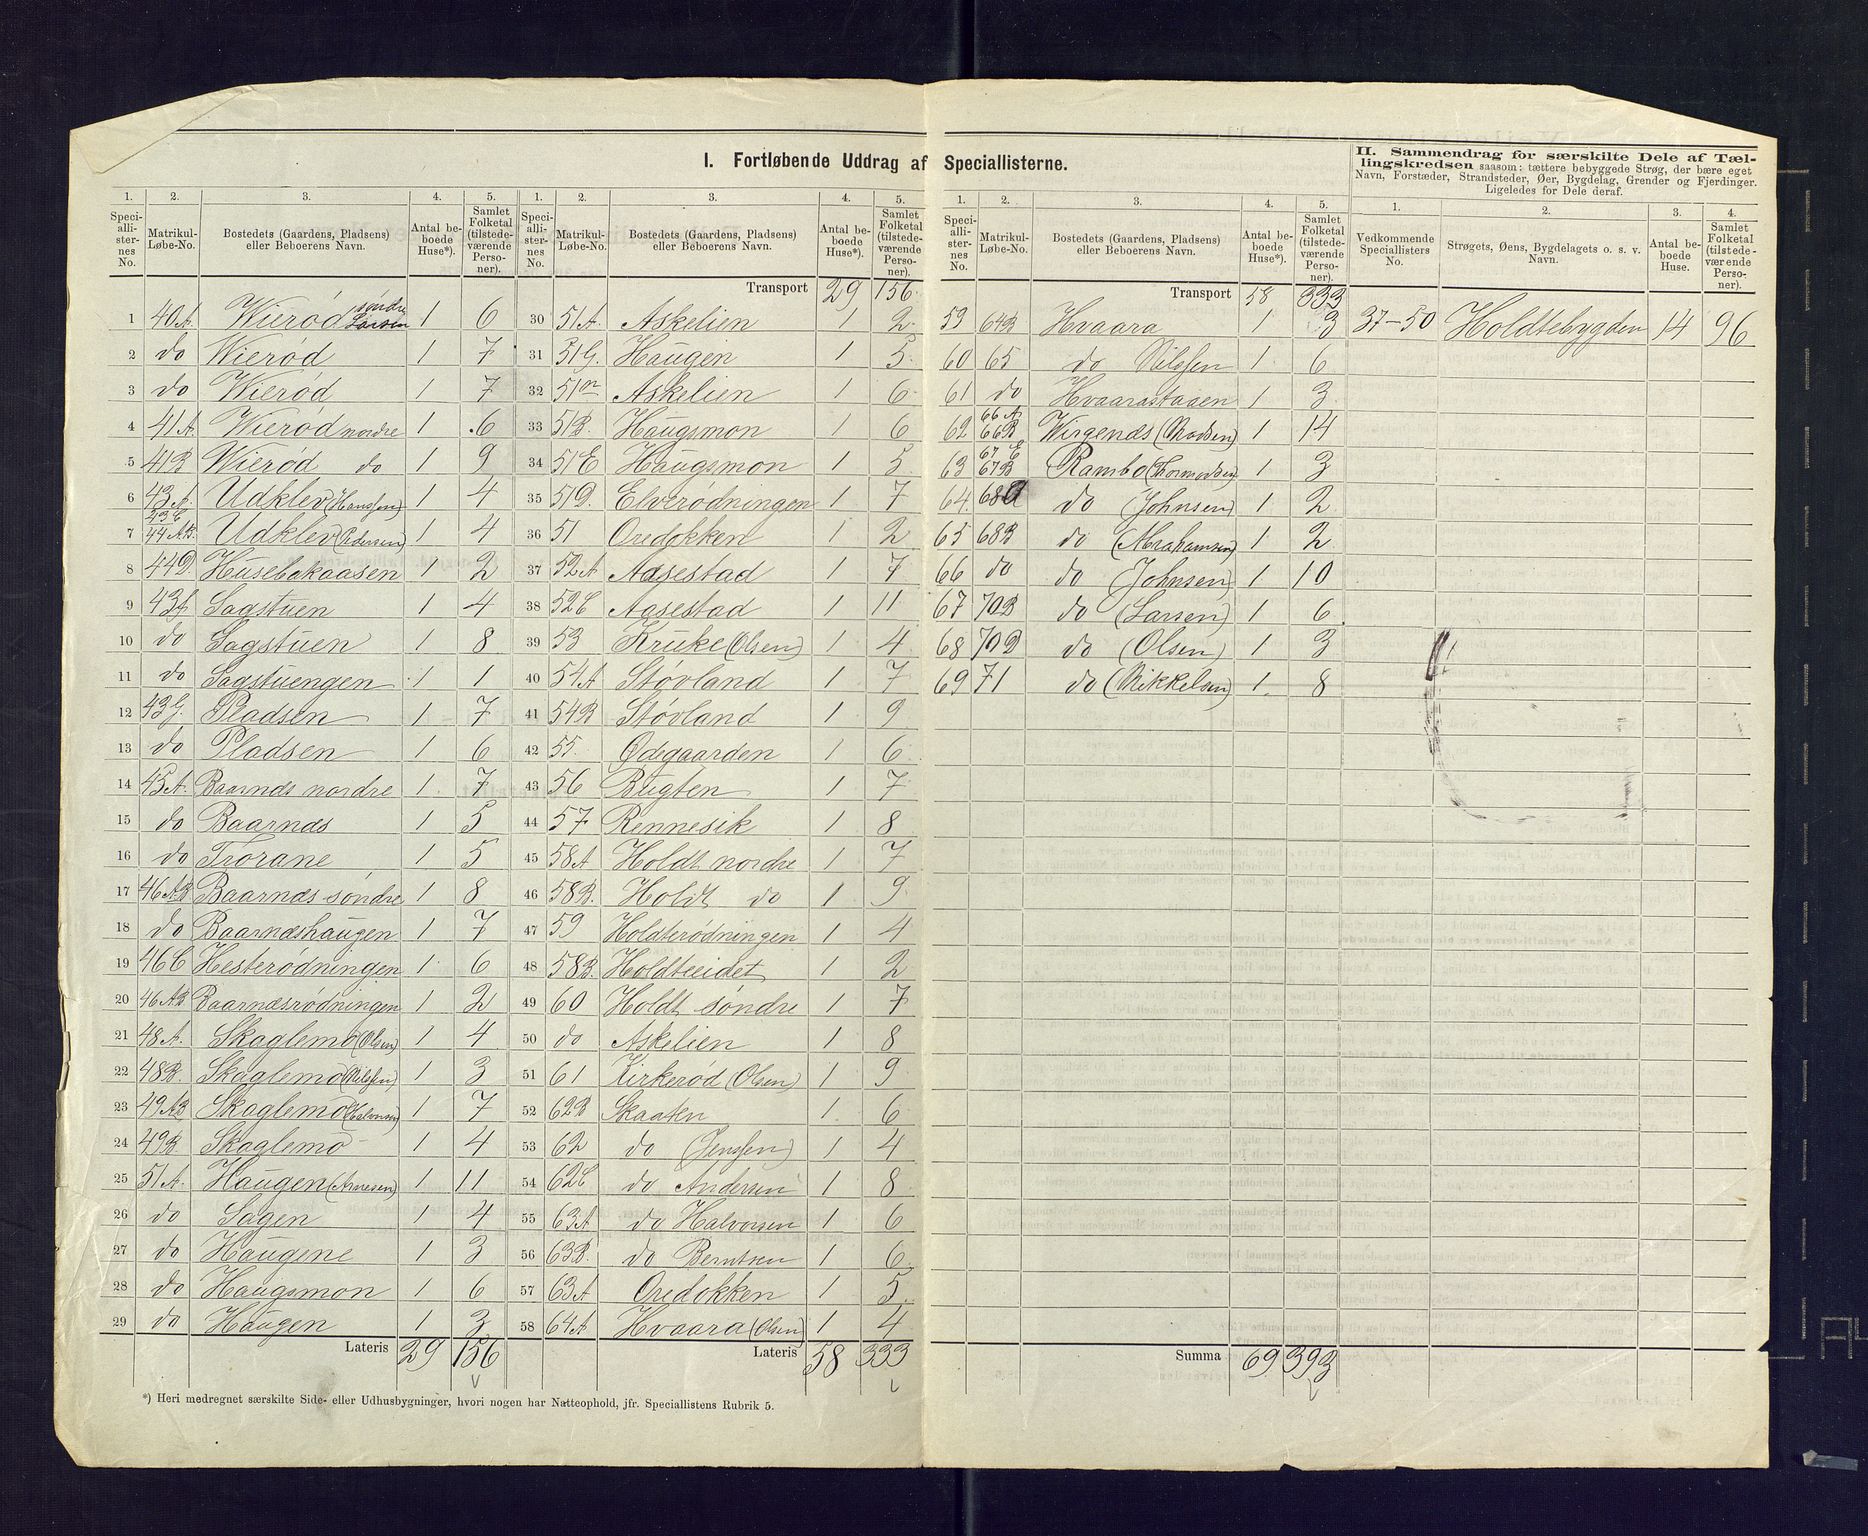 I. Fortløbende Uddrag af Speciallisterne.
II. Sammendrag for særskilte Dele af Tæl-
lingskredsen saasom: tættere bebyggede Strøg, der bære eget
Navn, Forstæder, Strandsteder, Øer, Bygdelag, Grender og Fjerdinger.
Ligeledes for Dele deraf.
1. 2. 3. 4. 5.
Speci-allister-nes No. Matrikul-Løbe-No. Bostedets (Gaardens, Pladsens) eller Beboerens Navn. Antal be-boede Huse*). Samlet Folketal (tilstede-værende Perso-ner).
1 40A. Wierød søndre Larsen 1 6
2 do Wierød 1 7
3 do Wierød 1 7
4 41A. Wierød nordre 1 6
5 41B Wierød do 1 9
6 43A. 43E Udklev (Hanssen) 1 4
7 44A.B. Udklev (Pedersen) 1 4
8 44D. Husebakaasen 1 2
9 43f. Sagstuen 1 4
10 do Sagstuen 1 8
11 do Sagstuengen 1 1
12 43G. Pladsen 1 7
13 do Pladsen 1 6
14 45A. Baarnæs nordre 1 7
15 do Baarnæs 1 5
16 do Trorane 1 5
17 46AB Baarnæs søndre 1 8
18 do Baarnæshaugen 1 7
19 46C Hesterødningen 1 6
20 46AB Baarnæsrødningen 1 2
21 48A. Skaglemo (Olsen) 1 4
22 48B. Skaglemo (Nilssen) 1 3
23 49AB Skaglemo (Halvorsen) 1 7
24 49B Skaglemo 1 4
25 51A. Haugen (Arnesen) 1 11
26 do Sagen 1 4
27 do Haugene 1 3
28 do Haugsmon 1 6
29 do Haugen 1 3
Lateris 29 156
1. 2. 3. 4. 5.
Speci-allister-nes No. Matrikul-Løbe-No. Bostedets (Gaardens, Pladsens) eller Beboerens Navn. Antal be-boede Huse*). Samlet Folketal (tilstede-værende Perso-ner).
Transport 29 156
30 51A. Askelien 1 2
31 51G. Haugen 1 5
32 51n Askelien 1 6
33 51B. Haugsmon 1 6
34 51E Haugsmon 1 5
35 51D. Elverødningen 1 7
36 51 Oredokken 1 2
37 52A Aasestad 1 7
38 52C Aasestad 1 11
39 53 Kruke (Olsen) 1 4
40 54A Støvland 1 7
41 54B Støvland 1 9
42 55. Ødegaarden 1 6
43 56 Bugten 1 7
44 57 Rennesik 1 8
45 58A Holdt nordre 1 7
46 58B. Holdt do 1 9
47 59 Holdterødningen 1 4
48 58B. Holdteeidet 1 2
49 60 Holdt søndre 1 7
50 do Askelien 1 8
51 61 Kirkerød (Olsen) 1 9
52 62B Skaaten 1 6
53 62 do (Jenssen) 1 4
54 62C do Andersen 1 8
55 63A do Halvorsen 1 6
56 63B. do Berntsen 1 6
57 63A Oredokken 1 5
58 64A Hvaara (Olsen) 1 4
Lateris 58 333
1. 2. 3. 4. 5.
Speci-allister-nes No. Matrikul-Løbe-No. Bostedets (Gaardens, Pladsens) eller Beboerens Navn. Antal be-boede Huse*). Samlet Folketal (tilstede-værende Perso-ner).
Transport 58 333
59 64B Hvaara 1 3
60 65 do Nilssen 1 6
61 do Hvaarastaaen 1 3
62 66A 66B Wirgenæs (Madsen) 1 14
63 67E 67B Rambo (Thormodsen) 1 3
64. 68A do (Johnsen) 1 2
65 68B do (Abrahamsen) 1 2
66 do do (Johnsen) 1 10
67 70B do (Larsen) 1 6
68 70D do (Olsen) 1 3
69 71 do (Mikkelsen) 1 8
Summa 69 393
1. 2. 3. 4.
Vedkommende Speciallisters No. Strøgets, Øens, Bygdelagets o. s. v. Navn. Antal be-boede Huse. Samlet Folketal (tilstede-værende Perso-ner).
37-50 Holdtebygden 14 96
*) Heri medregnet særskilte Side- eller Udhusbygninger, hvori nogen har Natteophold, jfr. Speciallistens Rubrik 5.